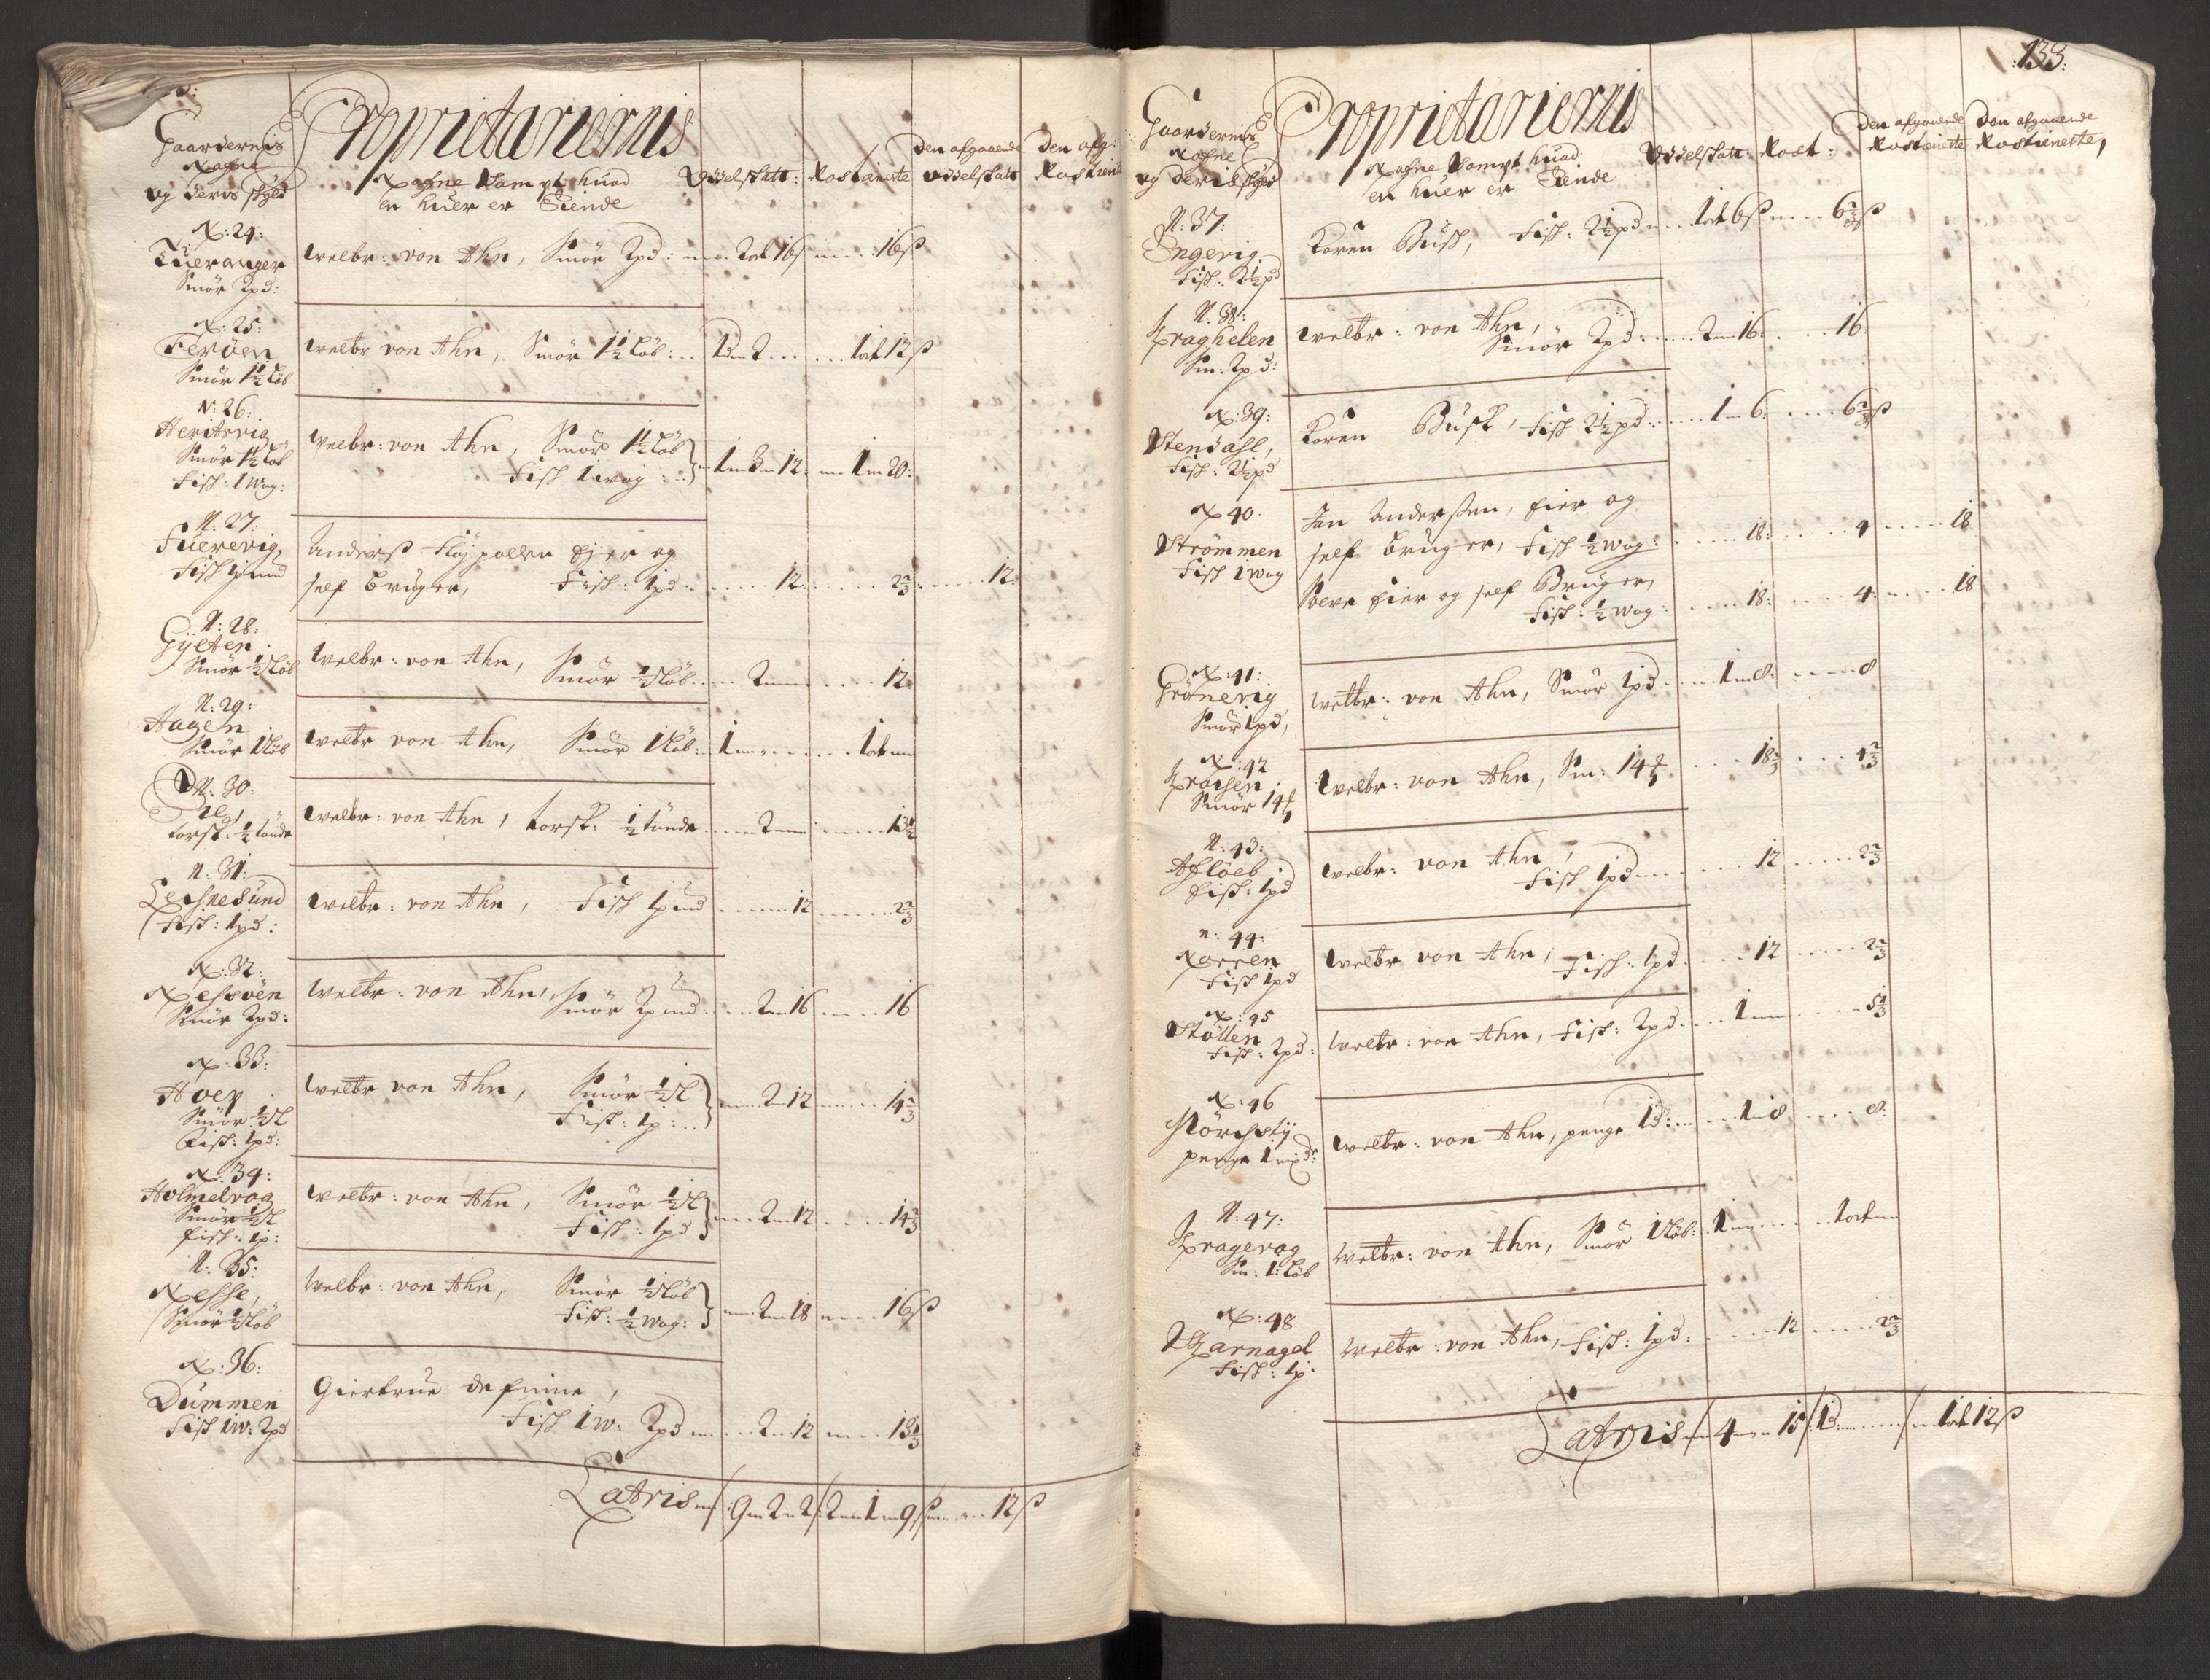 Gaardernis
Nafne
og deris skyld
Proprietariernis
Nafne sampt huad
en huer er Eiende
Odelskatt:
Rostieniste
den afgaaende
odelskatt
den afg:
Rostienist
N: 24:
Tueranger
Smör 2pd:
welbr: von Ahn, Smör 2pd: 2ort 16 16ß
N: 25:
Feröen
Smör 1½ Löb
welbr von Ahn, Smör 1½ Löb: 1d 2 1ort 12ß
N: 26:
Smör 1½ Löb
Fisk: 1 Wog:
welbr: von Ahn, Smör 1½ Löb
Fisk 1 wog: 1 3 12: 1 20:
N: 27:
Fuerevig
Fisk 1 pund
Anderß Fløypollen Ejer og
self bruger, Fisk: 1pd: 12: 2⅔: 12:
N: 28:
Gylten
Smör ½ Löb
welbr: von Ahn, Smör ½ Löb 2 12
N: 29:
Hagen
Smör 1 Löb
welbr von Ahn, Smör 1 Löb: 1 1ort
N: 30:
torsk: ½ tönde
welbr: von Ahn, torsk: ½ tönde 2 13½
N: 31:
Leisnesund
Fisk: 1pd:
welbr: von Ahn, Fisk 1 pund 12 2⅔
N: 32:
Nessöen
Smör 2pd:
welbr: von Ahn, Smör 2 pund 2 16 16
N: 33:
Hoey
Smör ½ L
Fisk: 1pd:
welbr von Ahn, Smör ½ L
Fisk: 1p: 2 12 14⅔
N: 34:
Holmelvog
Smör ½ L
fisk: 1p:
welbr: von Ahn, Smör ½ L
Fisk: 1pd 2 12 14⅔
N: 35:
Nesse,
Smör ½ Löb
welbr: von Ahn, Smör ½ Löb
Fisk: ½ Wog: 2 18 16ß
N: 36:
Dummen
Fisk 1 W: 2pd
Giertrue
Fisk 1 W: 2pd 2 12 13⅓
Latris 9 2 2 2 1 9ß 12ß
133:
Gaardernis
Nafne
og deris skyld
Proprietariernis
Nafne sampt huad
en huer er Eiende
Odelskatt:
Rost:
den afgaaende
Rostieniste
den afgaaende
Rostieneste,
N: 37:
Engevig
Fisk: 2½pd
Karen Busk, Fisk: 2½pd 1ort 6ß 6⅔ß
N: 38:
Kraghelen
Sm: 2pd:
welbr: von Ahn,
Smör 2pd: 2 16: 16:
N: 39:
Stendahl,
Fisk: 2½pd
Karen Busk, Fisk 2½pd: 1 6: 6⅔ß
N: 40:
Strömmen
Fisk 1 Wog
Jan Anderßen, Eier og
self bruger, Fisk ½ Wog: 18: 4 18
Eier og self Bruger,
Fisk: ½ Wog: 18: 4 18
N: 41:
Grönevig
Smör 1pd,
welbr: von Ahn, Smör 1pd 1 8: 8
N: 42
Smör 14
welbr: von Ahn, Sm: 14 18⅔ 4⅔
N: 43:
Aflöeb
fisk: 1pd
welbr: von Ahn,
Fisk 1pd 12 2⅔
N: 44:
Noreen
Fisk 1pd
welbr von Ahn, Fisk: 1pd 12 2⅔
N: 45
Stöllen
Fisk: 2pd:
welbr: von Ahn, Fisk: 2pd 1 5⅓
N: 46
penge
welbr: von Ahn, penge 1d: 1 8 8:
N: 47:
Kragevog
Sm: 1: Löb
welbr: von Ahn, Smör 1 Löb: 1 1ort
N: 48
Skarnagel
Fisk: 1p
welbr: von Ahn, Fisk: 1pd: 12 2⅔
Latris 4 15 1d 1ort 12ß